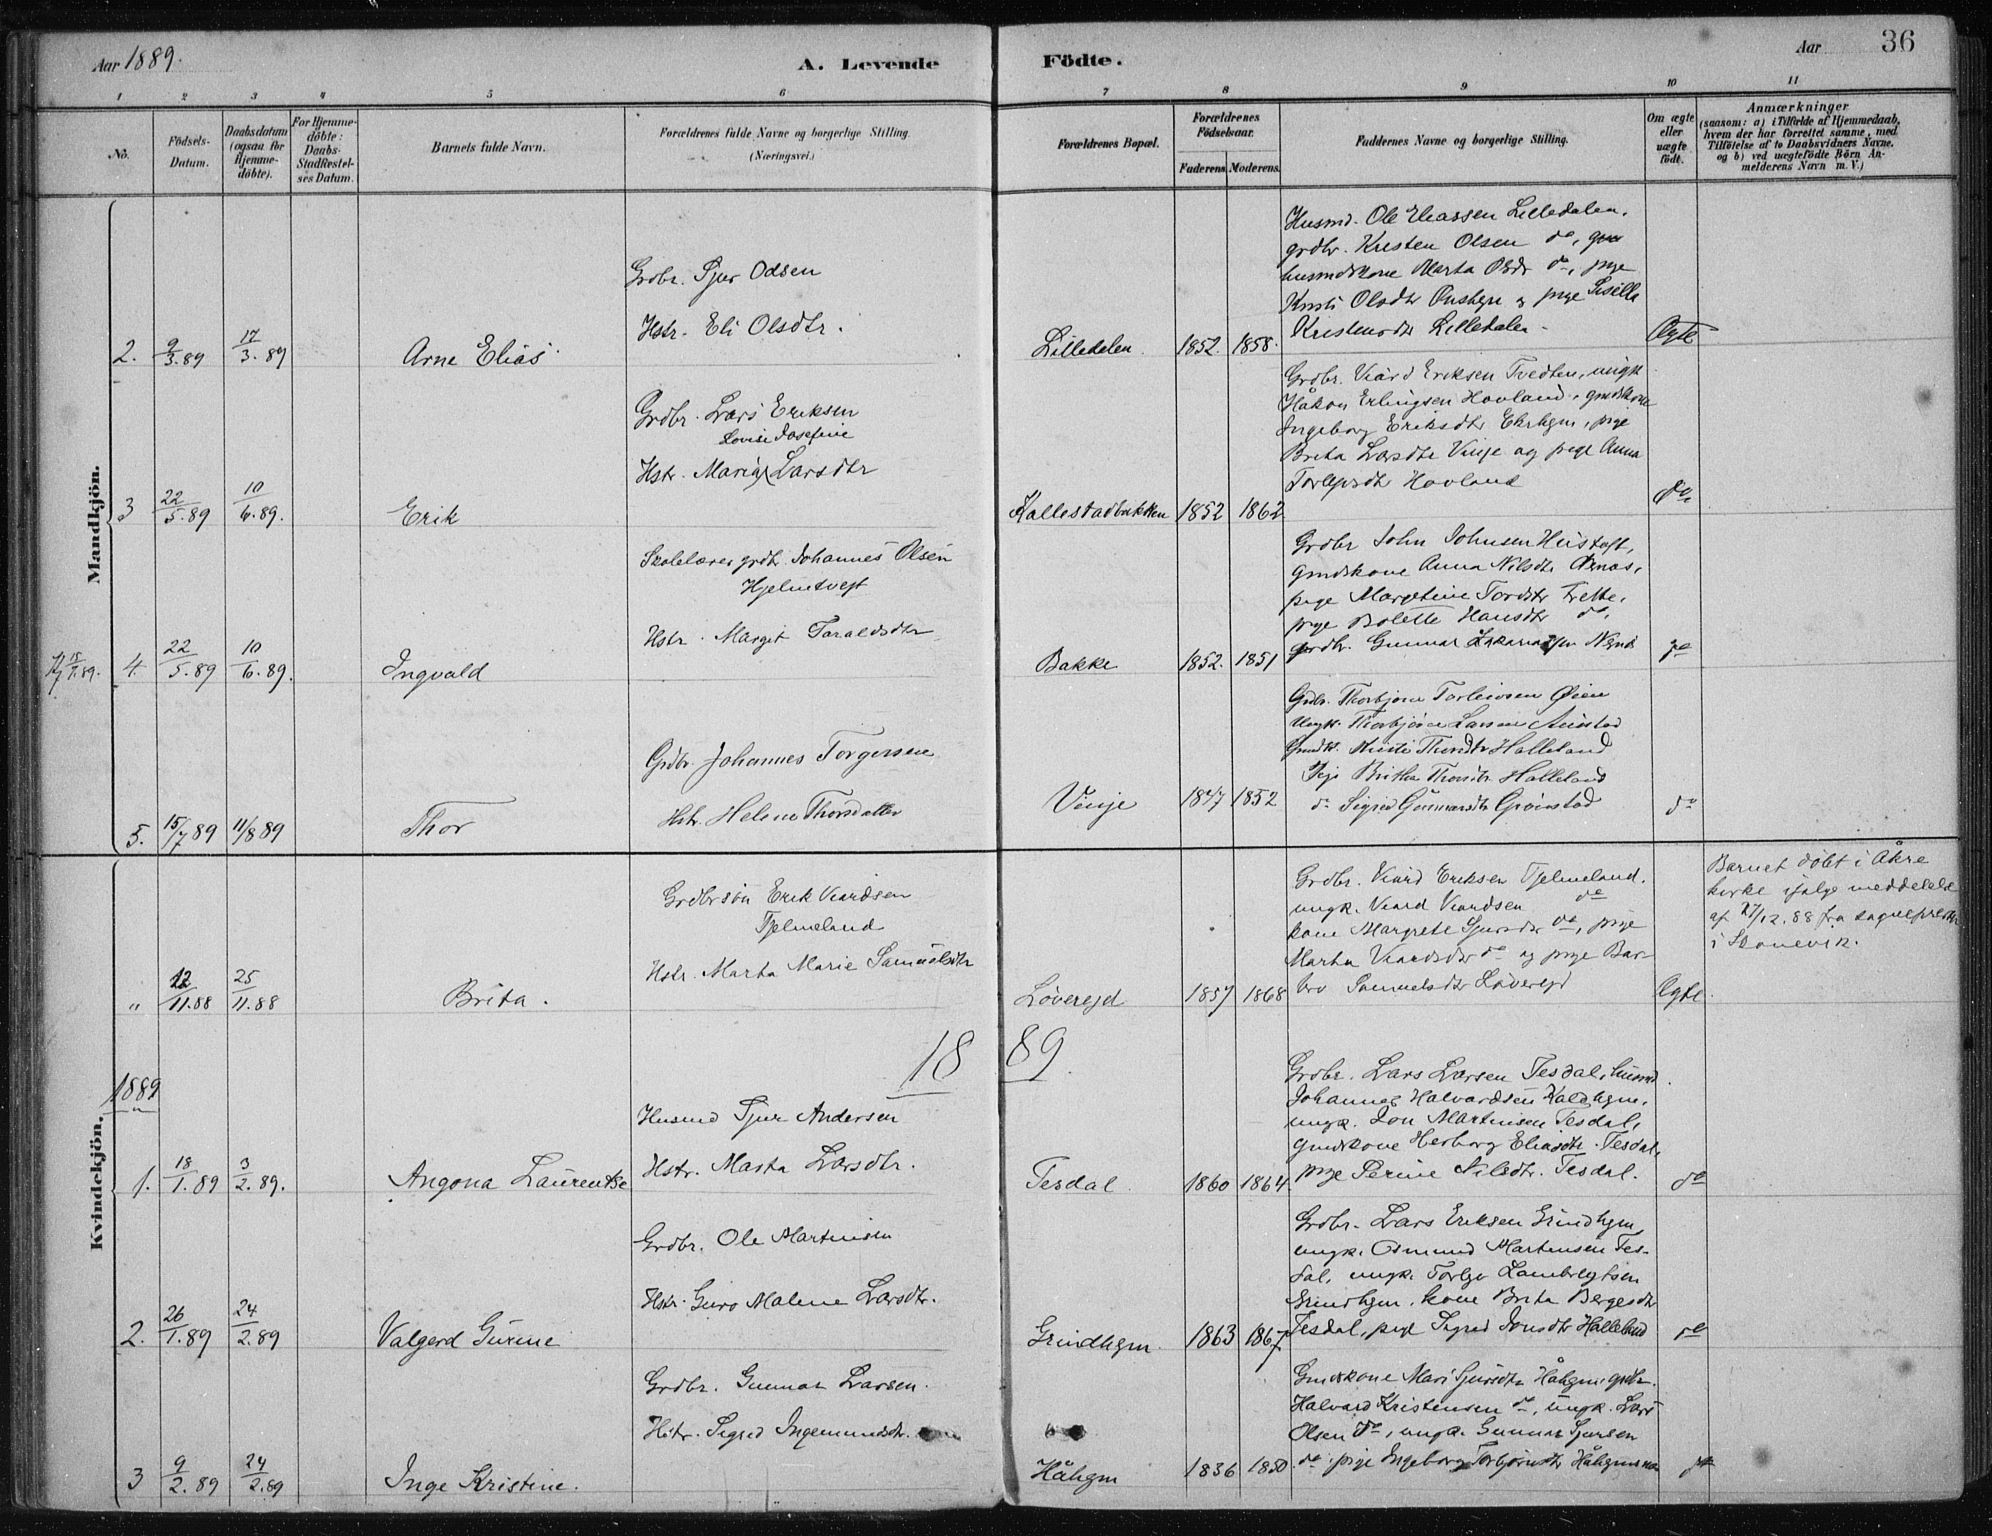 Aar 1889.
A. Levende
Födte.
Aar
36
1 2 3 4 5 6 7 8 9 10 11
No.
Födsels-
Datum.
Daabsdatum
(ogsaa for
Hjemme-
döbte).
For Hjemme-
döbte:
Daabs-
Stadfæstel-
ses Datum.
Barnets fulde Navn.
Forældrenes fulde Navne og borgerlige Stilling.
(Næringsvei.)
Forældrenes Bopæl.
Forældrenes
Födselsaar.
Faderens. Moderens.
Faddernes Navne og borgerlige Stilling.
Om ægte
eller
uægte
födt.
Anmærkninger
(saasom: a) i Tilfælde af Hjemmedaab,
hvem der har forrettet samme, med
Tilföielse af to Daabsvidners Navne,
og b) ved uægtefödte Börn An-
melderens Navn m. V.)
Mandkjön.
2. 9/3.89 17/3.89 Arne Elias
Grdbr. Sjur Odsen
Hstr. Eli Olsdtr.
Lilledalen 1852. 1858.
Husmd. Ole Eliassen Lilledalen,
grdbr. Kristen Olsen do,
husmdskone Marta Olsdr do, pige
Olsdtr og pige Sisilla
Kristensdtr Lilledalen
Ægte
3 22/5.89 10/6.89. Erik
Grdbr. Lars Eriksen
Lovise Josefine
Hstr. Maria Larsdtr
Kallestadbakken 1852 1862
Grdbr. Viard Eriksen Tvedten, ungk.
Håkon Erlingsen Hovland, gmdskone
Ingeborg Eriksdtr, pige
Brita Larsdtr Vinje og pige Anna
Torleivsdtr Hovland
do
4. 22/5.89 10/6.89. Ingvald
Skolelærer grdbr. Johannes Olsen
Hjelmtvegt
Hstr. Margit Taraldsdtr
Bakke 1852. 1851
Grdbr John Johnsen
gmdskone Anna Nilsdtr
pige Margetine Tordsdtr Frette,
pige Bolette Hansdtr do,
grdbr. Gunnar
do
5. 15/7 89 11/8 89 Thor
Grdbr. Johannes Torgersen
Hstr. Helene Thorsdatter
Vinje 1847 1852
Grdbr. Thorbjørn Torleivsen Øien
Ungk. Thorbjørn Larsen
Gmdk. Thorsdtr Halleland
Pige Britha Thorsdtr Halleland
do Sigrid Gunnarsdtr Grønstad
do
Kvindekjön.
" 12/11.88 25/11.88 Brita.
Grdbrsøn Erik Viardsen
Tjelmeland
Hstr. Marta Marie Samuelsdtr
Løvereid 1857 1868
Grdbr. Viard Eriksen Tjelmeland.
ungk. Viard Viardsen do
kone Margrete Sjursdtr do, pige
Marta Viardsdtr do og pige Bar-
bro Samuelsdtr Løvereid
Ægte.
Barnet døbt i Åkre
kirke ifølge meddelelse
af 27/12.88 fra sognepresten
i Skonevik.
1889
1889
1. 18/1.89 3/2.89. Angona Laurentse
Husmd Sjur Andersen
Hstr. Marta Larsdtr.
Tesdal 1860 1864
Grdbr. Lars Larsen Tesdal, husmd.
Johannes Halvardsen
ungk. Jon Martinsen Tesdal,
gmdskone Herborg Eliasdtr. Tesdal,
pige Perine Nilsdtr. Tesdal.
do
2. 26/1.89 24/2.89 Valgerd Gurine
Grdbr. Ole Martinsen
Hstr. Guro Malene Larsdtr.
Grindhgm. 1863 1867
Grdbr. Lars Eriksen Grindhgm,
ungk. Osmund Martinsen Tes-
dal, ungk. Lambregtsen
Grindhgm, kone Brita Bergesdtr
Tesdal, pige Sigrid Jonsdtr Halleland
do
3 9/2.89 24/2.89 Inge Kristine.
Grdbr. Gunnar Larsen.
Hstr. Sigrid Ingemundsdtr.
Håhgm 1836 1850
Gmdskone Mari Sjursdtr Håhgm, grdbr.
Halvard Kristensen do, ungk. Lars
Olsen do, ungk. Gunnar Sjursen
do, pige Ingeborg Torbjørnsdtr